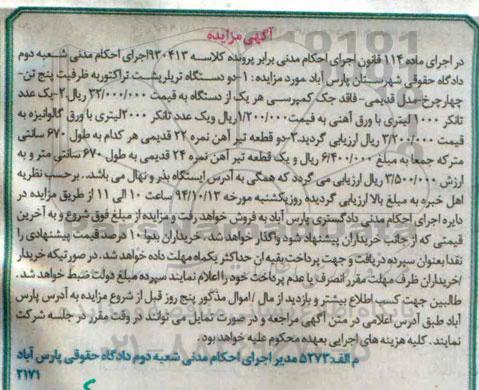 آگهی مزایده
در اجرای ماده ۱۱۴ قانون اجرای احکام مدنی برابر پرونده کلاسه ۹۳۰۴۱۳اجرای احکام مدنی شعبه دوم
دادگاه حقوقی شهرستان پارس آباد مورد مزایده : ۱-دو دستگاه تریلرپشت تراکتوربه ظرفیت پنج تن-
چهارچرخ-مدل قدیمی- فاقد جک کمپرسی هر یک از دستگاه به قیمت ۳۲/۰۰۰/۰۰۰ ریال.۲-یک عدد
تانکر ۱۰۰۰ لیتری با ورق آهنی به قیمت۱/۲۰۰/۰۰۰ریال ویک عدد تانکر ۲۰۰۰لیتری با ورق گالوانیزه به
قیمت ۳/۲۰۰/۰۰۰ ریال ارزیابی گردید.۳-دو قطعه تیر آهن نمره ۲۲ قدیمی هر کدام به طول ۶۷۰ سانتی
مترکه جمعا به مبلغ ۶/۴۰۰/۰۰۰ ریال و یک قطعه تیر آهن نمره ۲۴ قدیمی به طول ۶۷۰ سانتی متر و به
ارزش ۳/۵۰۰/۰۰۰ ریال ارزیابی می گردد که همگی به آدرس ایستگاه بذر و نهال می باشد. برحسب نظریه
اهل خبره به مبلغ بالا ارزیابی گردیده روزیکشنبه مورخه ۹۴/۱۰/۱۳ ساعت ۱۰ الی ۱۱ از طریق مزایده در
دایره اجرای احکام مدنی دادگستری پارس آباد به فروش خواهد رفت و مزایده از مبلغ فوق شروع و به آخرین
قیمتی که از جانب خریداران پیشنهاد شود واگذار خواهد شد. خریداران بدوا ۱۰ درصد قیمت پیشنهادی را
نقدا بعنوان سپرده دریافت و جهت پرداخت بقیه آن حداکثر یکماه مهلت داده خواهد شد. در صورتیکه خریدار
/خریداران ظرف مهلت مقرر انصراف یا عدم پرداخت خود را اعلام نمایند سپرده مبلغ دولت ضبط خواهد شد.
طالبین جهت کسب اطلاع بیشتر و بازدید از مال /اموال مذکور پنج روز قبل از شروع مزایده به آدرس پارس
آباد طبق آدرس اعلامی در متن آگهی مراجعه و در صورت تمایل می توانند در وقت مقرر در جلسه شرکت
نمایند. کلیه هزینه های اجرایی بعهده محکوم علیه خواهد بود.
م الف:۵۲۷۳ مدیر اجرای احکام مدنی شعبه دوم دادگاه حقوقی پارس آباد
۲۱۷۱